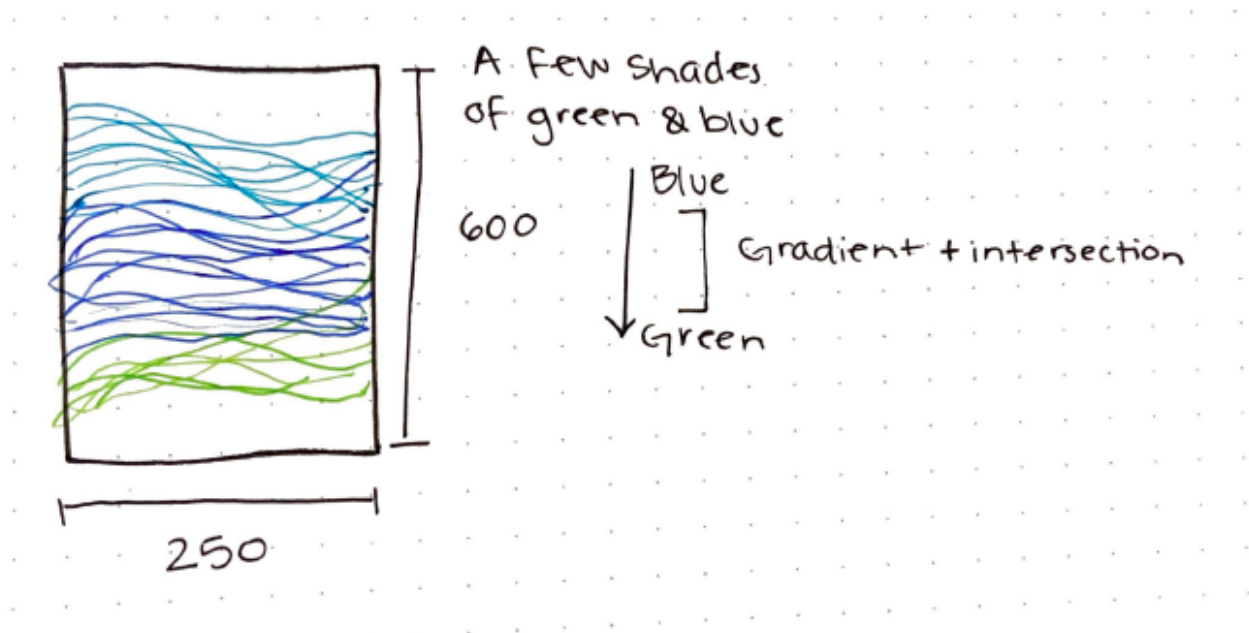 A few shades
of green & blue
Blue
600
Gradient + intersection
Green
250